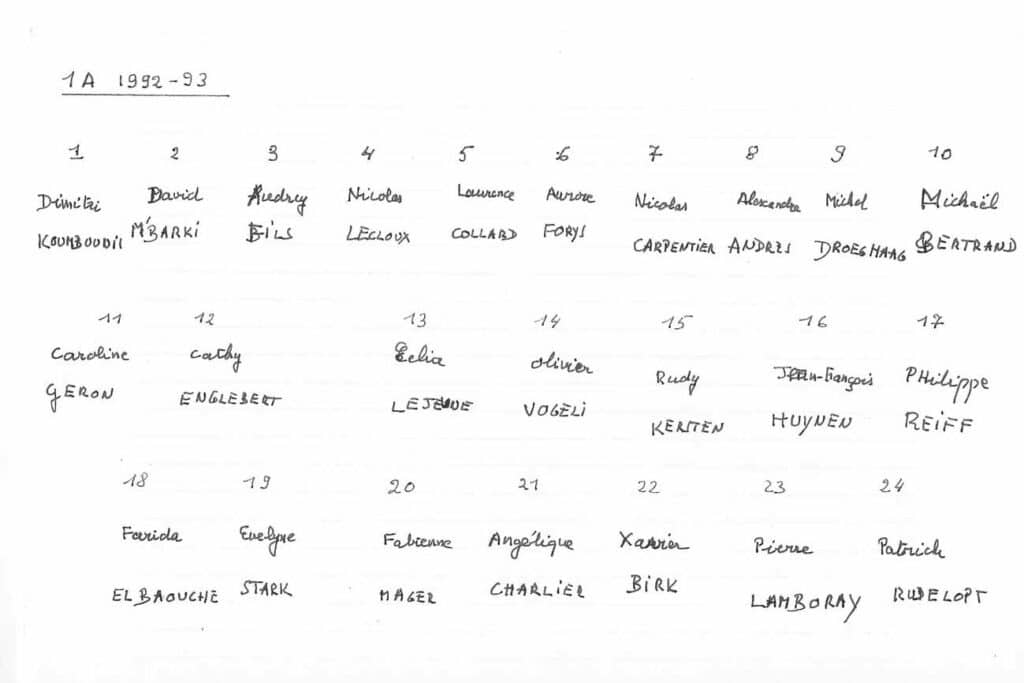 1A 1992-93
1 2 3 4 5 6 7 8 9 10
Dimitri David Audrey Nicolas Laurence Aurore Nicolas Alexandre Michel Michaël
KOUMBOUDIS M'BARKI LECLOUX COLLARD FORYS CARPENTIER ANDRES DROEGHAAG BERTRAND
11 12 13 14 15 16 17
Caroline Cathy Célia Olivier Rudy Jean-François PHilippe
GERON ENGLEBERT LEJEUNE VOGELI KERSTEN HUYNEN REIFF
18 19 20 21 22 23 24
Farida Evelyne Fabienne Angélique Xavier Pierre Patrick
EL BAOUCHE STARK MAGER CHARLIER BIRK LAMBORAY RUDELOPT